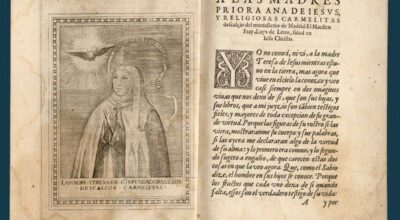 LA MADRE TERESA DE IESVS FVNDADORA DE LOS
DESCALÇOS CARMELITAS.
A LAS MADRES
PRIORA ANA DE IESVS,
Y RELIGIOSAS CARMELITAS
descalças del monasterio de Madrid El Maestro
Fray Luys de Leon, salud en
Iesu Christo.
YO no conoci, ni vi, a la madre
Teresa de Iesus mientras estuuo
en la tierra, mas agora que
viue en el cielo la conozco, y veo
casi siempre en dos imagines
viuas que nos dexo de si, que son sus hijas, y
sus libros, que a mi juyzio son tambien testigos
fieles, y mayores de toda excepcion de su gran
de virtud. Porque las figuras de su rostro si las
viera, mostraranme su cuerpo, y sus palabras,
si las oyera me declararan algo de la virtud
de su alma, y lo primero era comun, y lo se
gundo sugeto a engaño, de que carecen estas dos
cosas en que la veo agora. Que, como el Sabio
dize, el hombre en sus hijos se conoce. Porque
los fructos que cada vno dexa de si quando
falta, essos son el verdadero testigo de su vida
A y por